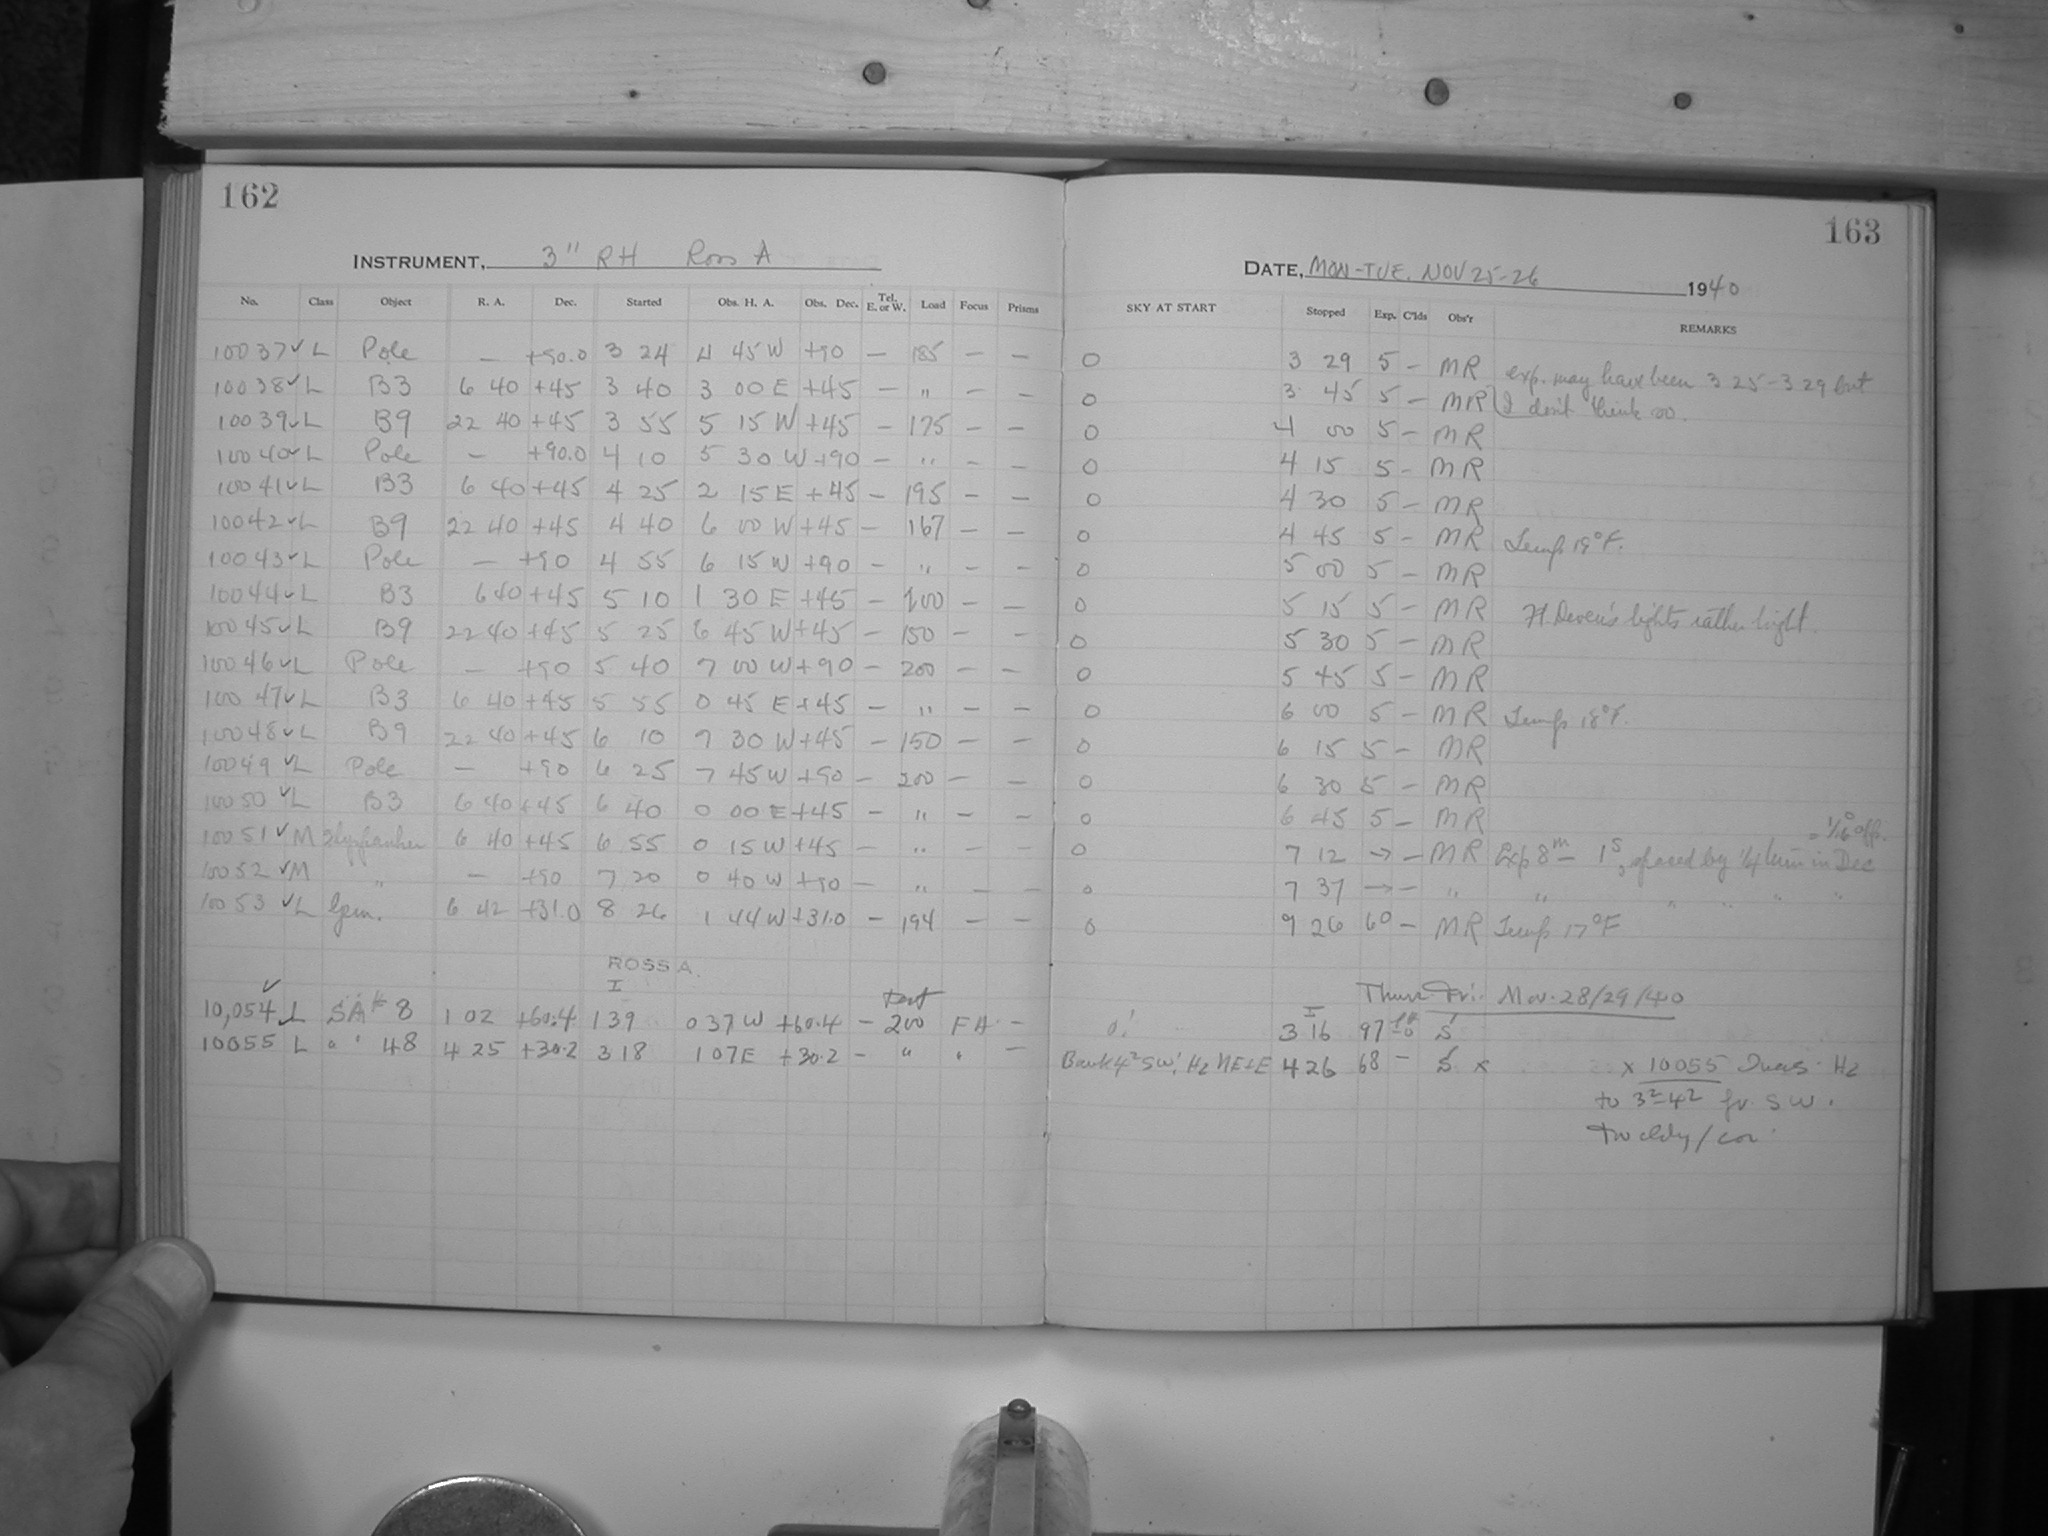 162
INSTRUMENT, 3" RH Ross A
No. Class Object R. A. Dec. Started Obs. H. A. Obs. Dec. Tel. E. or W. Load Focus Prisms
10037 ✓ L Pole — +90.0 3 24 4 45 W +90 — 185 — —
10038 ✓ L B3 6 40 +45 3 40 3 00 E +45 — " — —
10039 ✓ L B9 22 40 +45 3 55 5 15 W +45 — 175 — —
10040 ✓ L Pole — +90.0 4 10 5 30 W +90 — " — —
10041 ✓ L B3 6 40 +45 4 25 2 15 E +45 — 195 — —
10042 ✓ L B9 22 40 +45 4 40 6 00 W +45 — 167 — —
10043 ✓ L Pole — +90 4 55 6 15 W +90 — " — —
10044 ✓ L B3 6 40 +45 5 10 1 30 E +45 — 200 — —
10045 ✓ L B9 22 40 +45 5 25 6 45 W +45 — 150 — —
10046 ✓ L Pole — +90 5 40 7 00 W +90 — 200 — —
10047 ✓ L B3 6 40 +45 5 55 0 45 E +45 — " — —
10048 ✓ L B9 22 40 +45 6 10 7 30 W +45 — 150 — —
10049 ✓ L Pole — +90 6 25 7 45 W +90 — 200 — —
10050 ✓ L B3 6 40 +45 6 40 0 00 E +45 — " — —
10051 ✓ M 6 40 +45 6 55 0 15 W +45 — " — —
10052 ✓ M " — +90 7 20 0 40 W +90 — " — —
10053 ✓ L Gem. 6 42 +31.0 8 26 1 44 W +31.0 — 194 — —
ROSS A.
I
10,054 ✓ L SA # 8 1 02 +60.4 1 39 0 37 W +60.4 — 200 FA —
10055 L " " 48 4 25 +30.2 3 18 1 07 E +30.2 — " " —
163
DATE, MON-TUE. NOV 25-26 1940
SKY AT START Stopped Exp. C'lds Obs'r REMARKS
0 3 29 5 — MR exp. may have been 3 25 - 3 29 but
0 3 45 5 — MR I don't think so.
0 4 00 5 — MR
0 4 15 5 — MR
0 4 30 5 — MR
0 4 45 5 — MR Temp 19°F.
0 5 00 5 — MR
0 5 15 5 — MR Ft. Deven's lights rather bright.
0 5 30 5 — MR
0 5 45 5 — MR
0 6 00 5 — MR Temp 18°F.
0 6 15 5 — MR
0 6 30 5 — MR
0 6 45 5 — MR
0 7 12 → — MR Exp 8m — 1s, spaced by 1/4 turn in Dec
0 7 37 → — " " " " " "
0 9 26 60 — MR Temp 17°F
Thurs-Fri. Nov. 28/29/40
I
0! 3 16 97 S
Bank 4² SW! Hz NE+E 4 26 68 — S x x 10055 Hz
to 3²-4² fr. SW.